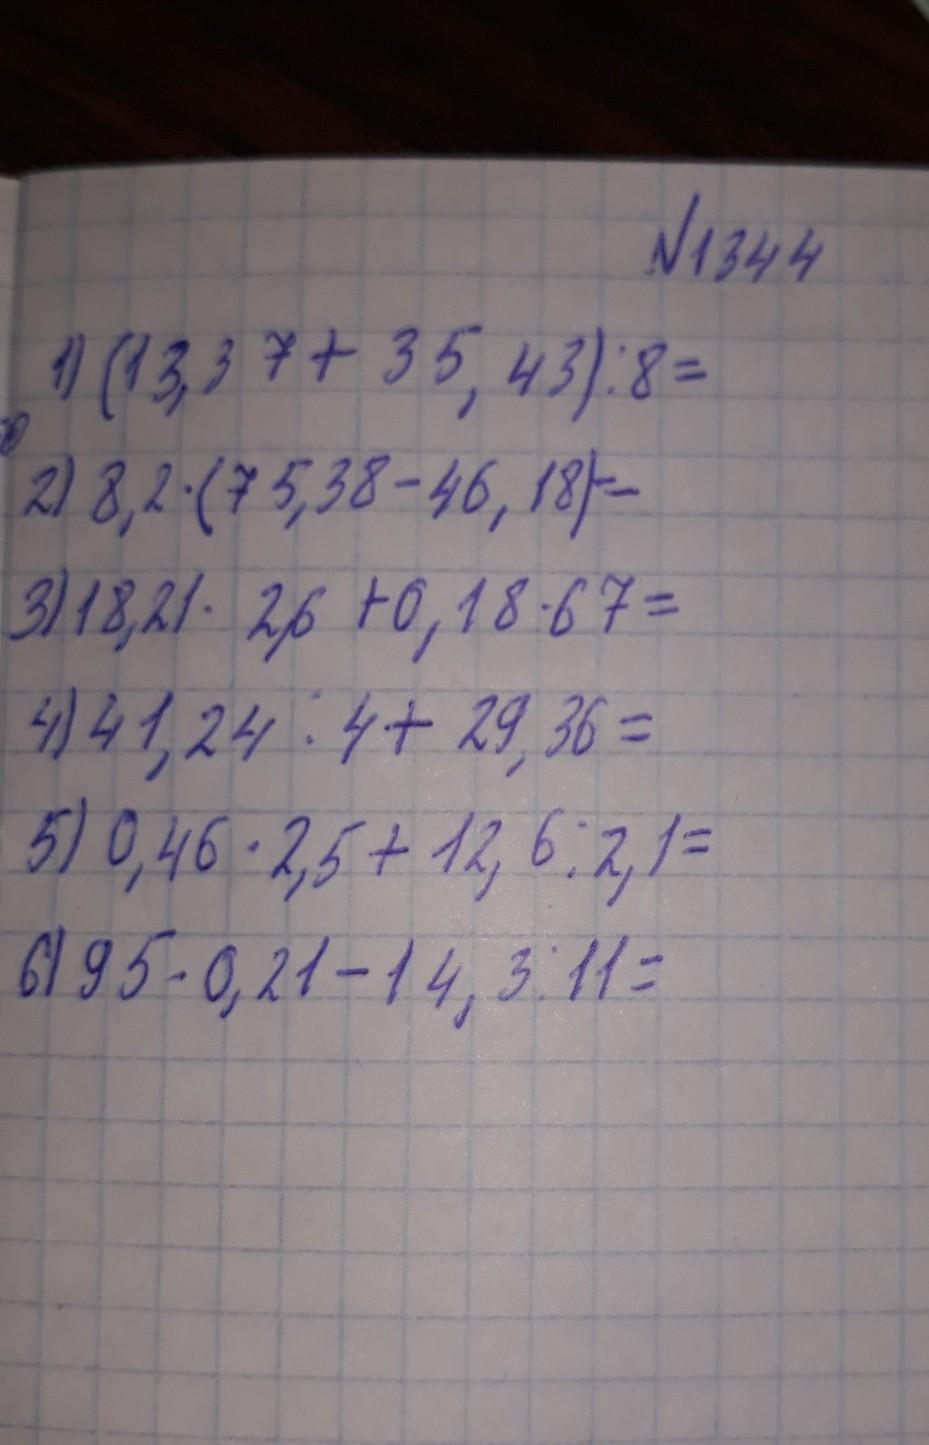 №1344
1) (13,37+ 35,43):8=
2) 8,2·(75,38-46,18)=
3) 18,21· 2,6 +0,18·67=
4) 41,24 : 4+ 29,36=
5) 0,46·2,5+ 12,6:2,1=
6) 95·0,21-14,3:11=